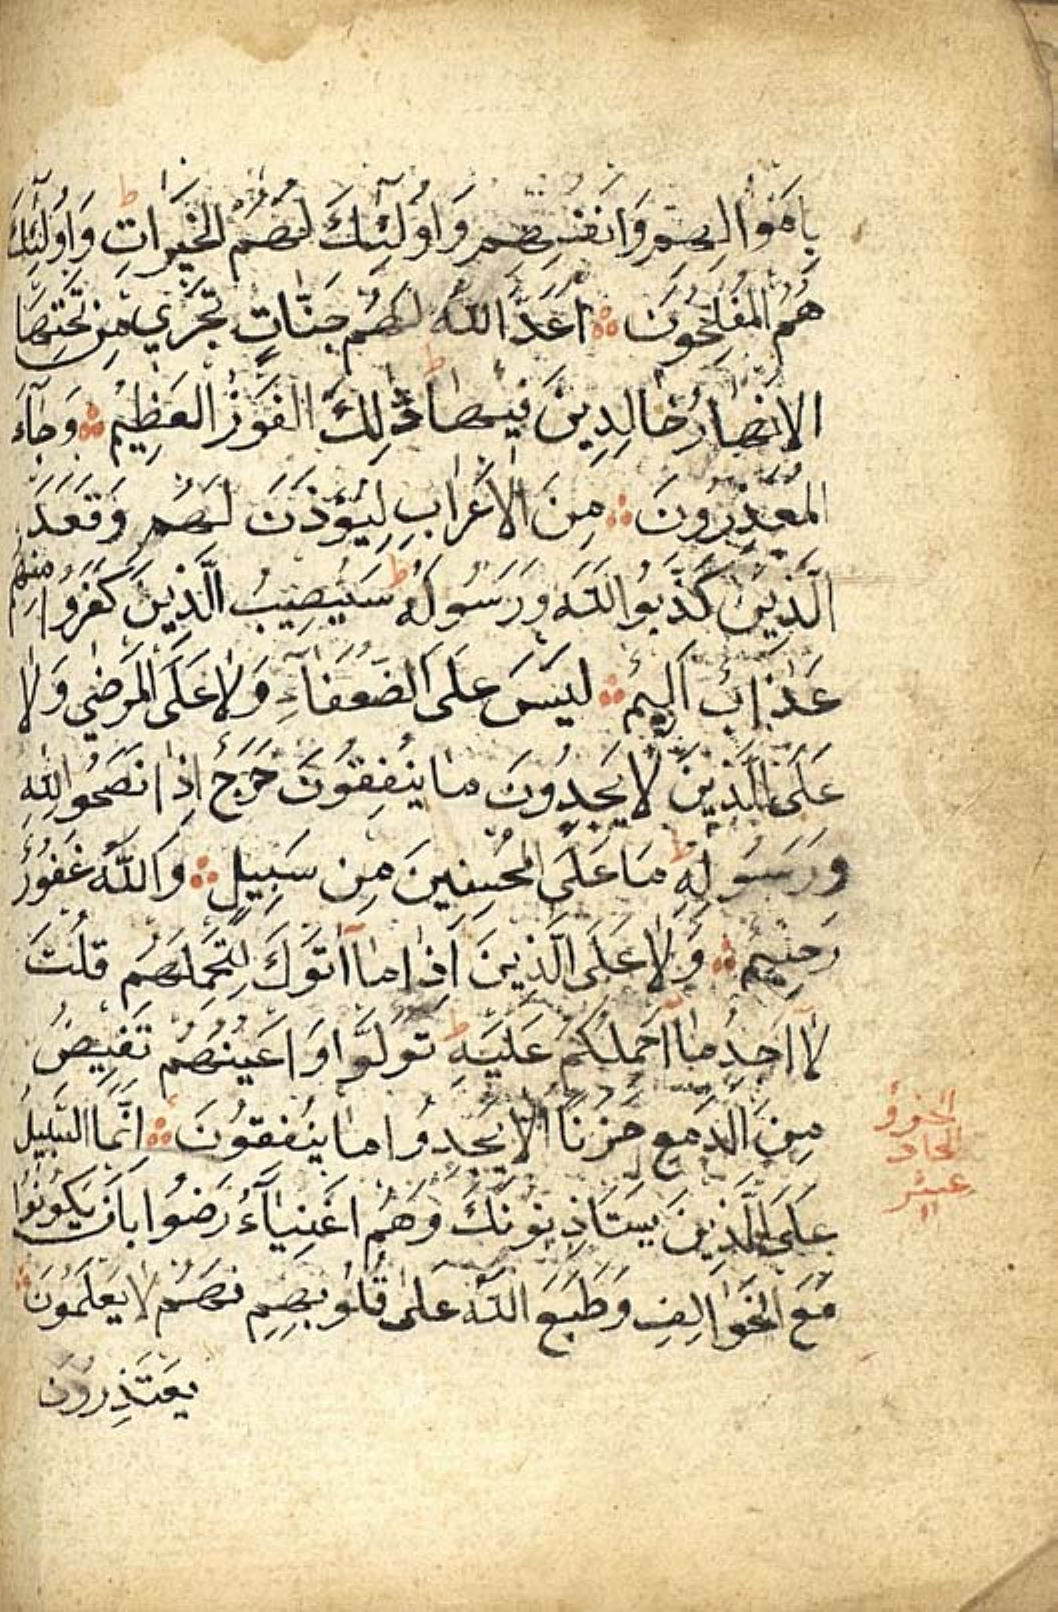 بِاَمْوَالِهِمْ وَاَنْفُسِهِمْ وَاُولٰٓئِكَ لَهُمُ الْخَيْرَاتِ ط وَاُولٰٓئِكَ
هُمُ الْمُفْلِحُونَ ۞ اَعَدَّ اللّٰهُ لَهُمْ جَنَّاتٍ تَجْرِي مِنْ تَحْتِهَا
الْاَنْهَارُ خَالِدِينَ فِيهَا ط ذٰلِكَ الْفَوْزُ الْعَظِيمُ ۞ وَجَآءَ
الْمُعَذِّرُونَ ۞ مِنَ الْاَعْرَابِ لِيُؤْذَنَ لَهُمْ وَقَعَدَ
الَّذِينَ كَذَّبُوا اللّٰهَ وَرَسُولَهُ ط سَيُصِيبُ الَّذِينَ كَفَرُوا مِنْهُمْ
عَذَابٌ اَلِيمٌ ۞ لَيْسَ عَلَى الضُّعَفَآءِ وَلَا عَلَى الْمَرْضٰى وَلَا
عَلَى الَّذِينَ لَا يَجِدُونَ مَا يُنْفِقُونَ حَرَجٌ اِذَا نَصَحُوا لِلّٰهِ
وَرَسُولِهِ ط مَا عَلَى الْمُحْسِنِينَ مِنْ سَبِيلٍ ۞ وَاللّٰهُ غَفُورٌ
رَحِيمٌ ۞ وَلَا عَلَى الَّذِينَ اِذَا مَآ اَتَوْكَ لِتَحْمِلَهُمْ قُلْتَ
لَآ اَجِدُ مَآ اَحْمِلُكُمْ عَلَيْهِ ط تَوَلَّوْا وَاَعْيُنُهُمْ تَفِيضُ
مِنَ الدَّمْعِ حَزَنًا اَلَّا يَجِدُوا مَا يُنْفِقُونَ ۞ اِنَّمَا السَّبِيلُ
عَلَى الَّذِينَ يَسْتَاْذِنُونَكَ وَهُمْ اَغْنِيَآءُ رَضُوا بِاَنْ يَكُونُوا
مَعَ الْخَوَالِفِ وَطَبَعَ اللّٰهُ عَلٰى قُلُوبِهِمْ فَهُمْ لَا يَعْلَمُونَ ۞
يَعْتَذِرُونَ
الجزؤ
الحاد
عشر